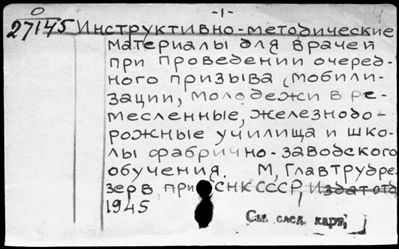 О -1-
27145 Инструктивно-методические
материалы для врачей
при проведении очеред-
ного призыва (мобили-
зации, молодежи в ре-
месленные, железнодо-
рожные училища и шко-
лы фабрично-заводского
обучения. М, Главтрудре-
зерв при СНК СССР, Издат отд,
1945
См. след. карт,